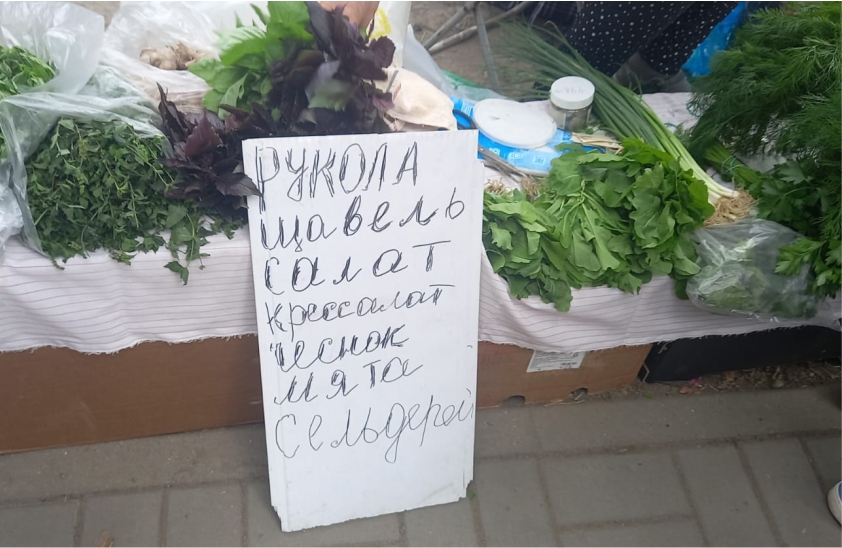 РУКОЛА
щавель
салат
крессалат
чеснок
мята
Сельдерей